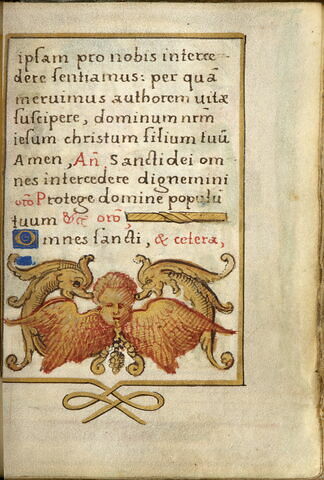 ipsam pro nobis interce-
dere sentiamus: per quā
meruimus authorem vitæ
suscipere, dominum nrm̄
iesum christum filium tuū
Amen, Añ Sancti dei om
nes intercedere dignemini
orō Protege domine populū
tuum &c orō,
Omnes sancti, & cetera,